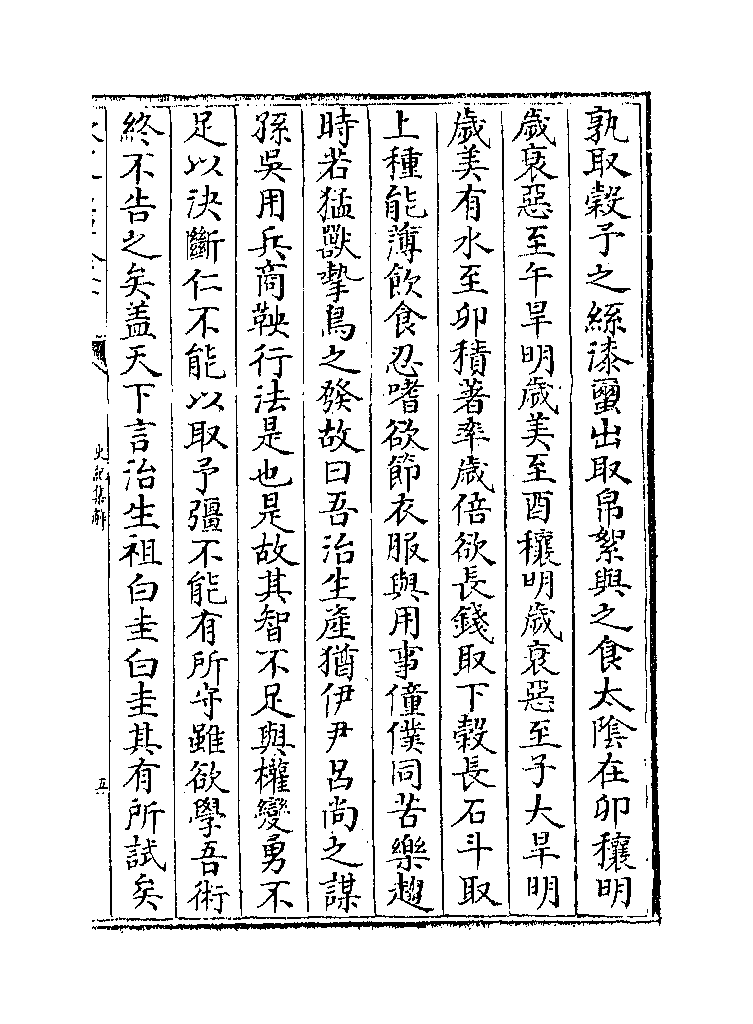 孰取穀予之絲漆蠒出取帛絮與之食太陰在卯穰明
歲衰惡至午旱明歲美至酉穰明歲衰惡至子大旱明
歲美有水至卯積著率歲倍欲長錢取下穀長石斗取
上種能薄飲食忍嗜欲節衣服與用事僮僕同苦樂趨
時若猛獸摯鳥之發故曰吾治生產猶伊尹呂尚之謀
孫吳用兵商鞅行法是也是故其智不足與權變勇不
足以決斷仁不能以取予彊不能有所守雖欲學吾術
終不告之矣盖天下言治生祖白圭白圭其有所試矣
史記集解
五